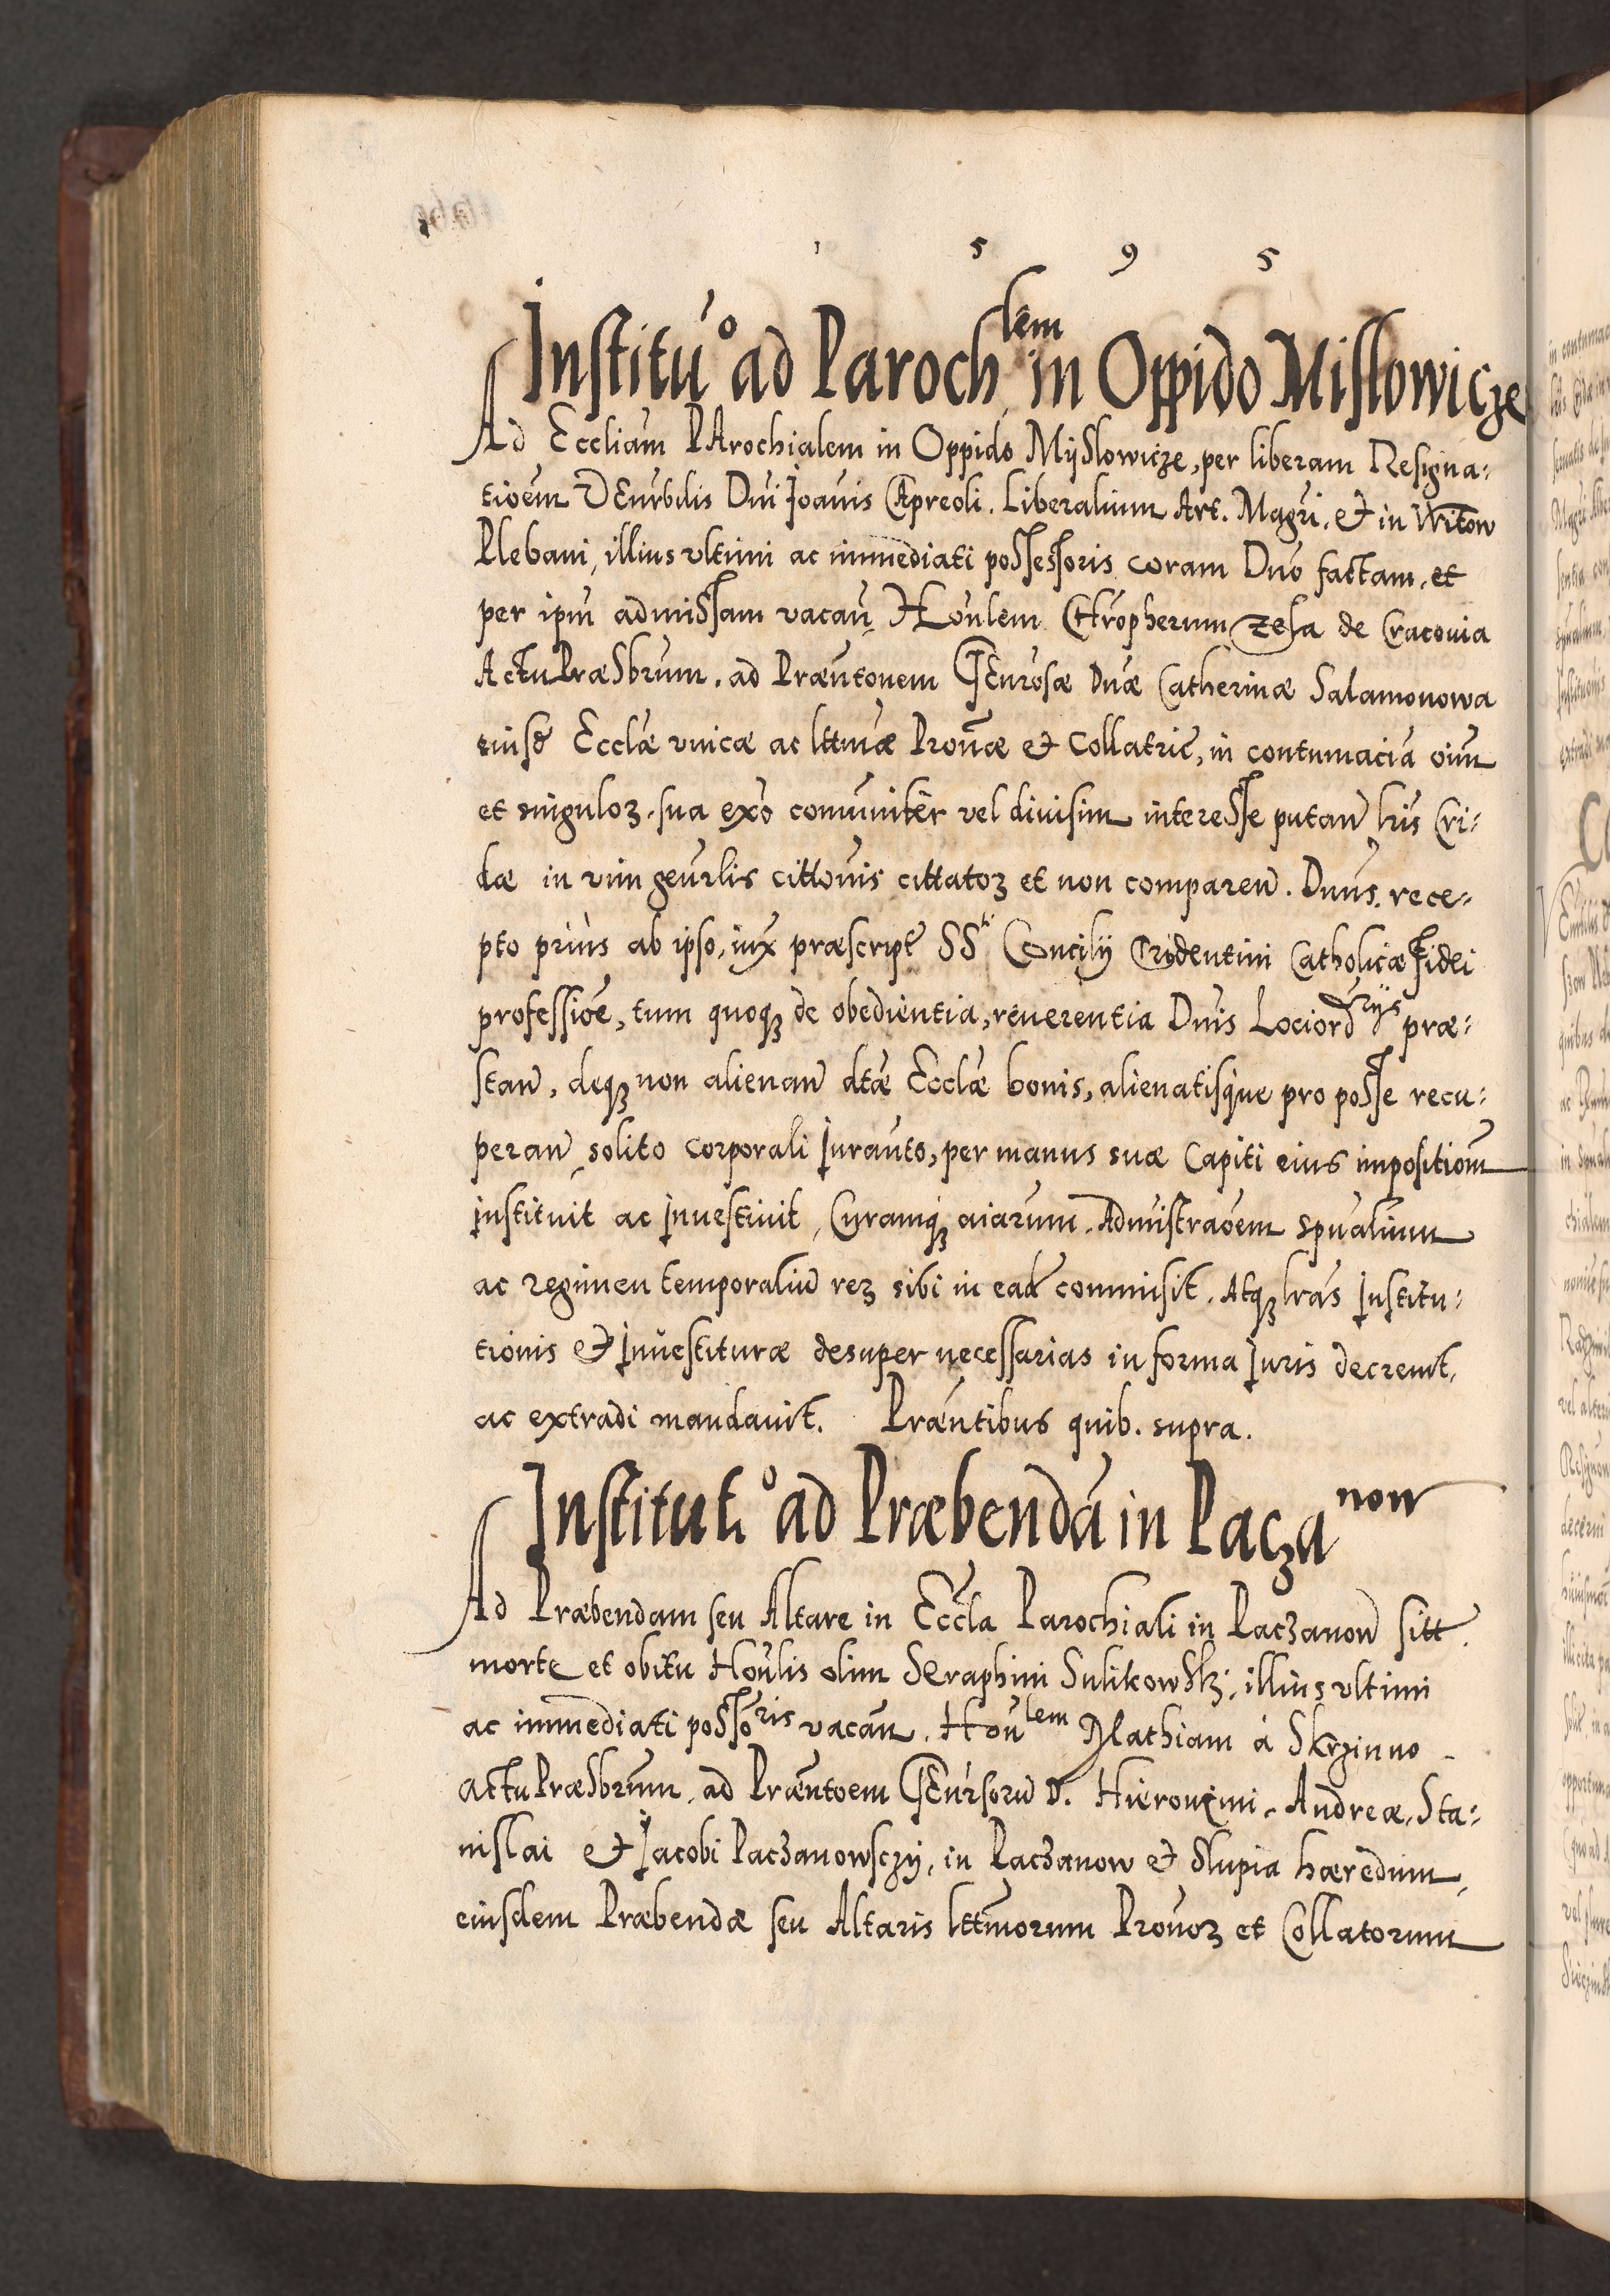 1 5 9 5
Institu͠o ad Paroch lem in Oppido Mislowicze
Ad Eccliam PArochialem in Oppido Mÿslowicze, per liberam Resigna⸗
tioem VEnrbilis Dni Joānis CApreoli. Liberalium Art. Magri. et in Witow
Plebani, illius vltimi ac immediati possessoris coram Dno factam, et
per ipm̄ admissam vacan̄, HOnlem CHropherum Zesa de Cracouia
Actu Præsbrum. ad Præntonem GEnrosæ Dnæ Catherinæ Salamonowa
eiusd Ecclæ vnicæ ac lttmæ Pronæ et Collatric̄, in contumaciā oim̄
et singuloꝝ. sua exō comuniter vel diuisim interesse putan̄ lris Cri⸗
dæ in vim genrlis cittonis cittatoꝝ et non comparen̄. Dnus. rece⸗
pto priùs ab ipso, iux̄ præscript̄ SSti Concilij Tridentini Catholicæ Fidei
professioē, tum quoqꝫ de obedientia, reuerentia Dnis Lociord rijs præ⸗
stan̄, deqꝫ non alienan̄ dtæ Ecclæ bonis, alienatisque pro posse recu⸗
peran̄ solito corporali Juranto, per manus suæ Capiti eius impositiom̄
instituit ac Inuestiuit, Curamqꝫ aiarum. Admistraoem spualium
ac regimen temporaliū reꝝ sibi in ead̄ commisit. Atqꝫ lras Institu⸗
tionis et Inuestituræ desuper necessarias in forma Juris decreuit,
ac extradi mandauit. Præntibus quib. supra.
Institut.o ad Præbendā in Pacza now
Ad Præbendam seu Altare in Eccla Parochiali in Paczanow sitt.
morte et obitu Honlis olim Seraphini Sulikowskj. illius vltimi
ac immediati posso ris vacan̄. Hon lem Mathiam à Skrzinno
Actu Præsbrum, ad Præntoem GEnrsorū D. Hieronimi, Andreæ, Sta⸗
nislai et Jacobi Paczanowsczÿ, in Paczanow et Slupia hæredum,
eiusdem Præbendæ seu Altaris lttmorum Pronoꝝ et Collatorum